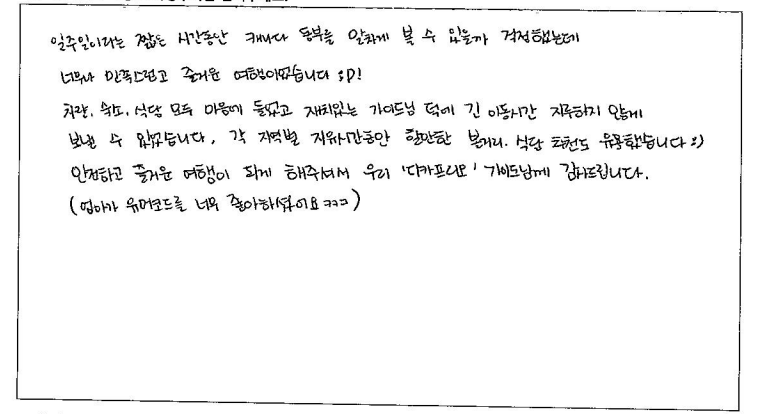 일주일이라는 짧은 시간동안 캐나다 동부를 알차게 볼 수 있을까 걱정했는데
너무나 만족스럽고 즐거운 여행이었습니다 :D!
차량, 숙소, 식당 모두 마음에 들었고 재치있는 가이드님 덕에 긴 이동시간 지루하지 않게
보낼 수 있었습니다, 각 지역별 자유시간동안 할만한 볼거리, 식당 추천도 유용했습니다 :)
안전하고 즐거운 여행이 되게 해주셔서 우리 '디카프리오' 가이드님께 감사드립니다.
(엄마가 유머코드를 너무 좋아하셨어요 ㅋㅋㅋ)